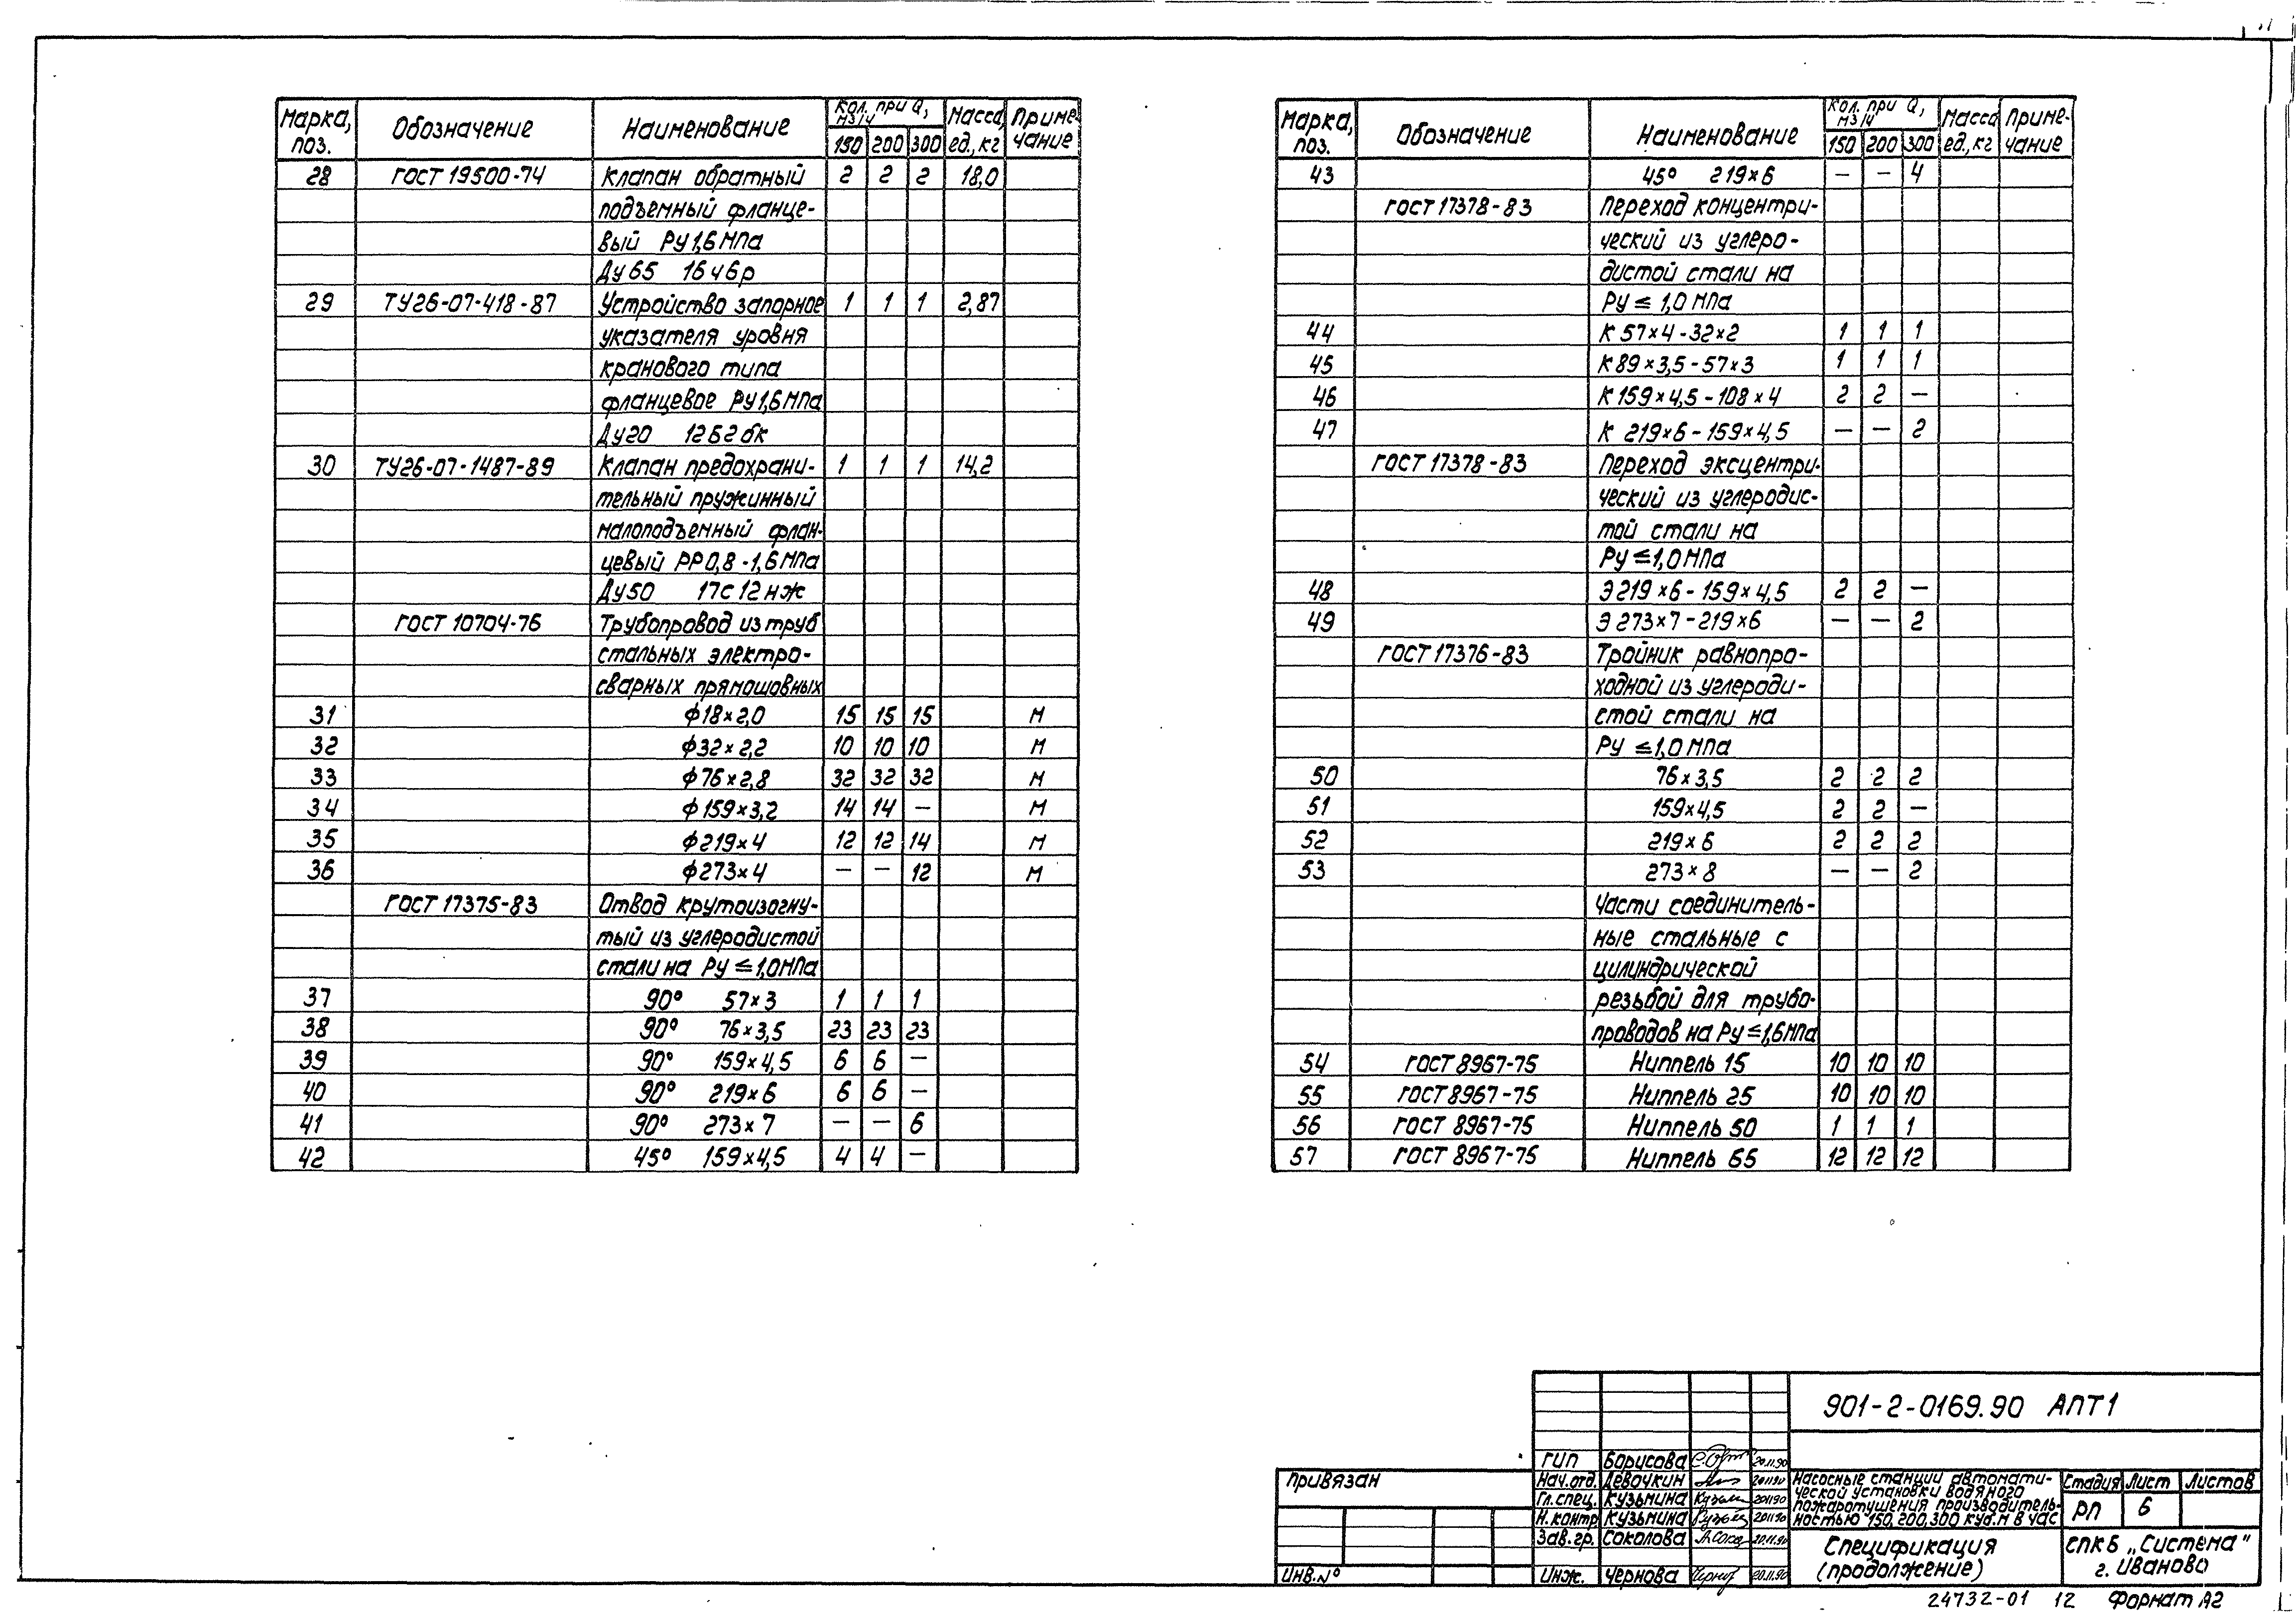 Марка, поз. Обозначение Наименование Кол. при Q, м3/ч 150 200 300 Масса ед., кг Примечание
28 ГОСТ 19500-74 Клапан обратный 2 2 2 18,0
подъемный фланце-
вый Ру 1,6 МПа
Ду 65 16ч6р
29 ТУ26-07-418-87 Устройство запорное 1 1 1 2,87
указателя уровня
кранового типа
фланцевое Ру1,6МПа
Ду20 12Б2бк
30 ТУ26-07-1487-89 Клапан предохрани- 1 1 1 14,2
тельный пружинный
малоподъемный флан-
цевый РР 0,8-1,6 МПа
Ду50 17с12нж
ГОСТ 10704-76 Трубопровод из труб
стальных электро-
сварных прямошовных
31 ф18×2,0 15 15 15 м
32 ф32×2,2 10 10 10 м
33 ф76×2,8 32 32 32 м
34 ф159×3,2 14 14 — м
35 ф219×4 12 12 14 м
36 ф273×4 — — 12 м
ГОСТ 17375-83 Отвод крутоизогну-
тый из углеродистой
стали на Ру ≤ 1,0МПа
37 90° 57×3 1 1 1
38 90° 76×3,5 23 23 23
39 90° 159×4,5 6 6 —
40 90° 219×6 6 6 —
41 90° 273×7 — — 6
42 45° 159×4,5 4 4 —
Марка, поз. Обозначение Наименование Кол. при Q, м3/ч 150 200 300 Масса ед., кг Приме-чание
43 45° 219×6 — — 4
ГОСТ 17378-83 Переход концентри-
ческий из углеро-
дистой стали на
Ру ≤ 1,0 МПа
44 К 57×4-32×2 1 1 1
45 К 89×3,5-57×3 1 1 1
46 К 159×4,5-108×4 2 2 —
47 К 219×6-159×4,5 — — 2
ГОСТ 17378-83 Переход эксцентри-
ческий из углеродис-
той стали на
Ру ≤ 1,0 МПа
48 Э 219×6-159×4,5 2 2 —
49 Э 273×7-219×6 — — 2
ГОСТ 17376-83 Тройник равнопро-
ходной из углероди-
стой стали на
Ру ≤ 1,0 МПа
50 76×3,5 2 2 2
51 159×4,5 2 2 —
52 219×6 2 2 2
53 273×8 — — 2
Части соединитель-
ные стальные с
цилиндрической
резьбой для трубо-
проводов на Ру ≤ 1,6МПа
54 ГОСТ 8967-75 Ниппель 15 10 10 10
55 ГОСТ 8967-75 Ниппель 25 10 10 10
56 ГОСТ 8967-75 Ниппель 50 1 1 1
57 ГОСТ 8967-75 Ниппель 65 12 12 12
901-2-0169.90 АПТ1
Привязан
Инв. №
ГИП Борисова 20.11.90
Нач. отд. Девочкин 20.11.90
Гл. спец. Кузьмина 20.11.90
Н. контр. Кузьмина 20.11.90
Зав. гр. Соколова 20.11.90
Инж. Чернова 20.11.90
Насосные станции автомати-
ческой установки водяного
пожаротушения производитель-
ностью 150, 200, 300 куб.м в час
Стадия Лист Листов
РП 6
Спецификация
(продолжение)
СПКБ „Система"
г. Иваново
24732-01 12 Формат А2